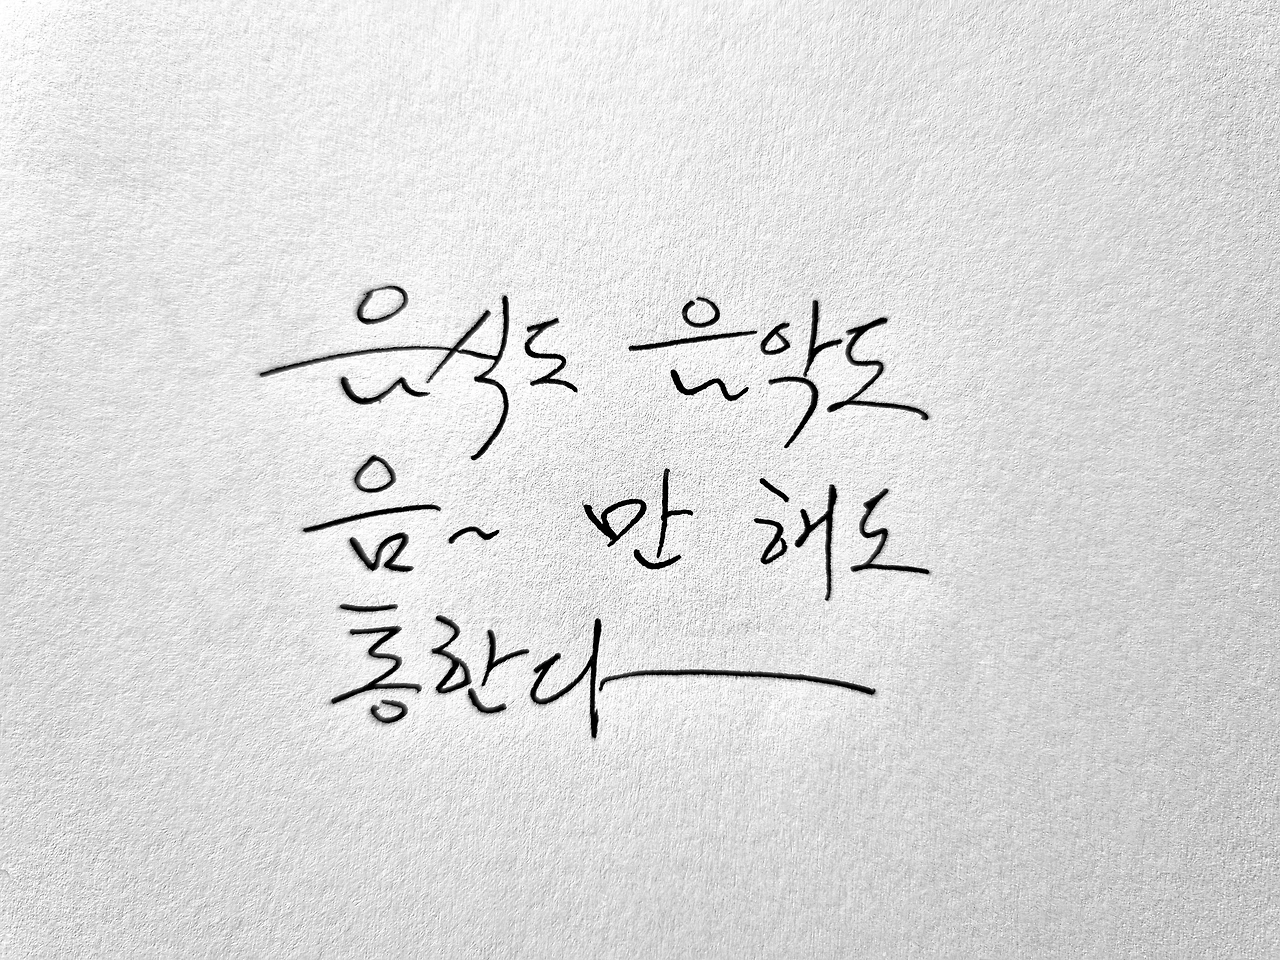 음식도 음악도
음~ 만 해도
통한다